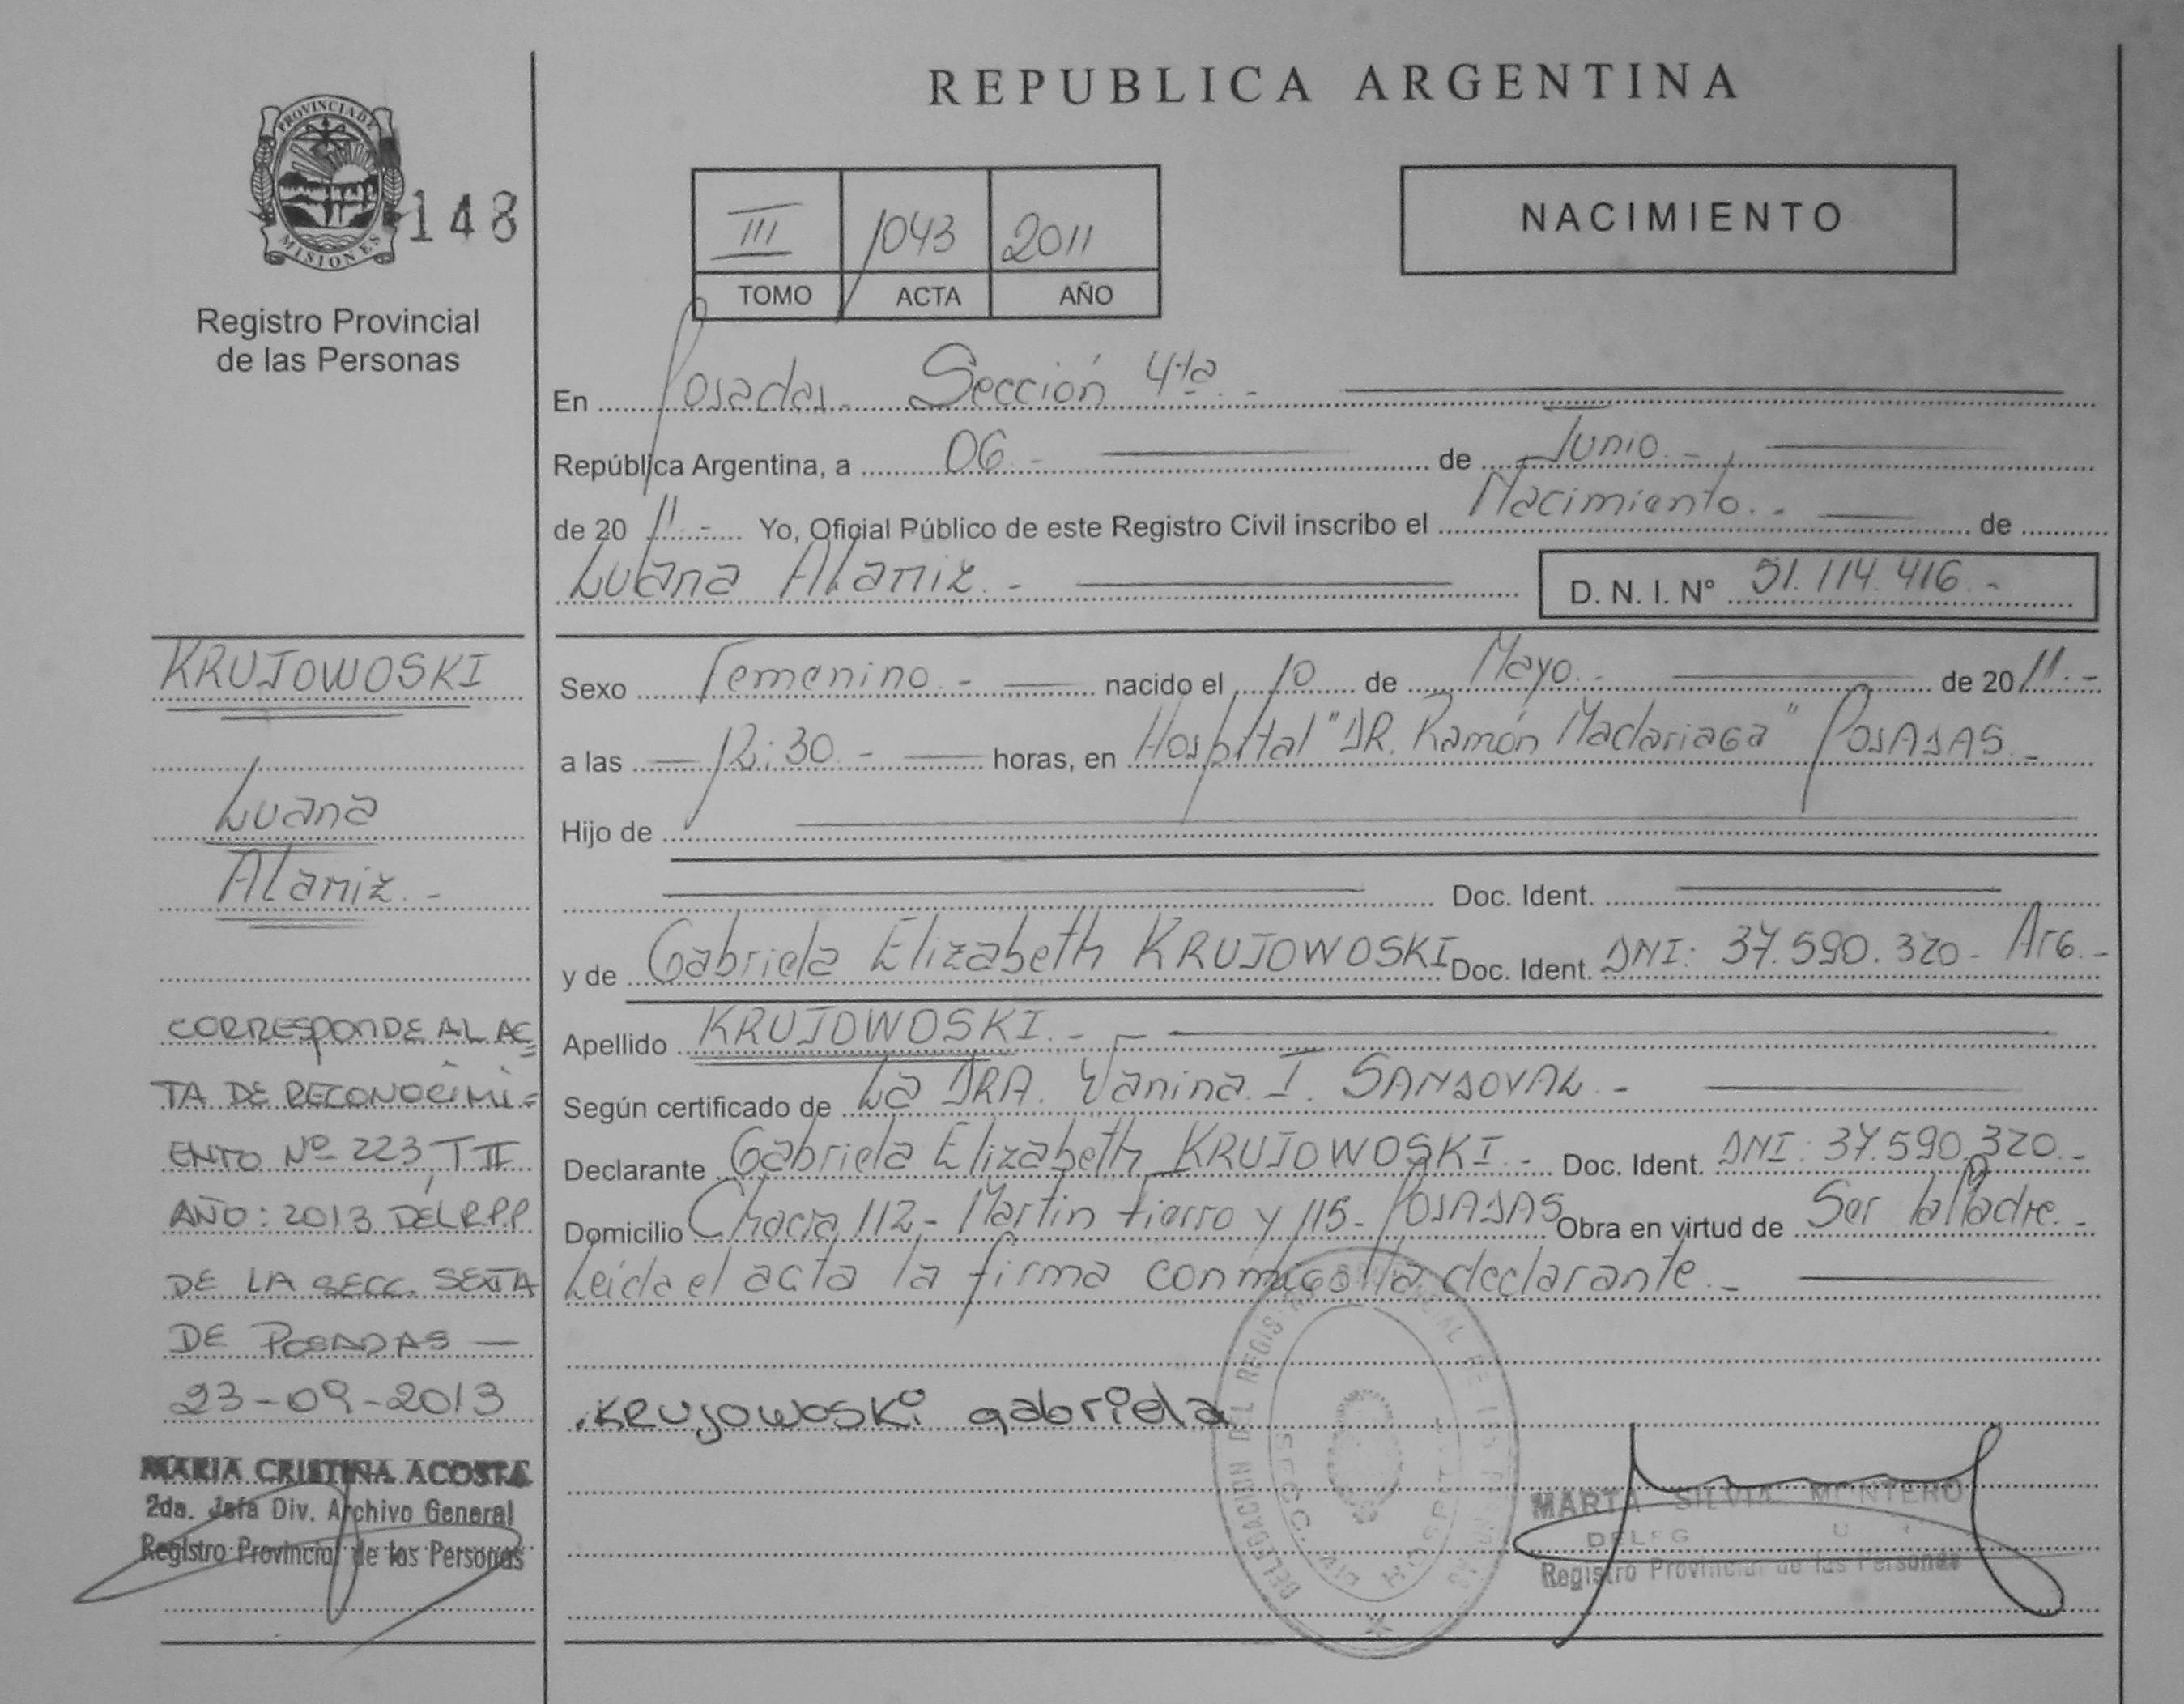 REPUBLICA ARGENTINA
PROVINCIA DE
MISIONES
148
Registro Provincial
de las Personas
III 1043 2011
TOMO ACTA AÑO
NACIMIENTO
En Posadas.- Sección 4ta.-
República Argentina, a 06.- de Junio.-
de 20 11.- Yo, Oficial Público de este Registro Civil inscribo el Nacimiento.- de
Luana Alamiz.- D. N. I. Nº 51.114.416.-
KRUJOWOSKI
Luana
Alamiz.-
CORRESPONDE AL AC=
TA DE RECONOCIMI=
ENTO Nº 223, T II
AÑO: 2013 DEL R.P.P
DE LA SECC. SEXTA
DE POSADAS —
23-09-2013
MARIA CRISTINA ACOSTA
2da. Jefa Div. Archivo General
Registro Provincial de las Personas
Sexo Femenino.- nacido el 10 de Mayo.- de 20 11.-
a las 12:30.- horas, en Hospital "DR. Ramón Madariaga" POSADAS.-
Hijo de
Doc. Ident.
y de Gabriela Elizabeth KRUJOWOSKI Doc. Ident. DNI: 37.590.320- Arg.-
Apellido KRUJOWOSKI.-
Según certificado de La DRA. Vanina I. SANDOVAL.-
Declarante Gabriela Elizabeth KRUJOWOSKI.- Doc. Ident. DNI: 37.590.320.-
Domicilio Chacra 112- Martin Fierro y 115- POSADAS Obra en virtud de Ser la Madre.-
Leida el acta la firma conmigo la declarante.-
Krujowoski gabriela
DELEGACION DEL REGISTRO PROVINCIAL DE LAS PERSONAS
SECC. 4ta HOSPITAL
MARTA SILVIA MONTERO
Registro Provincial de las Personas